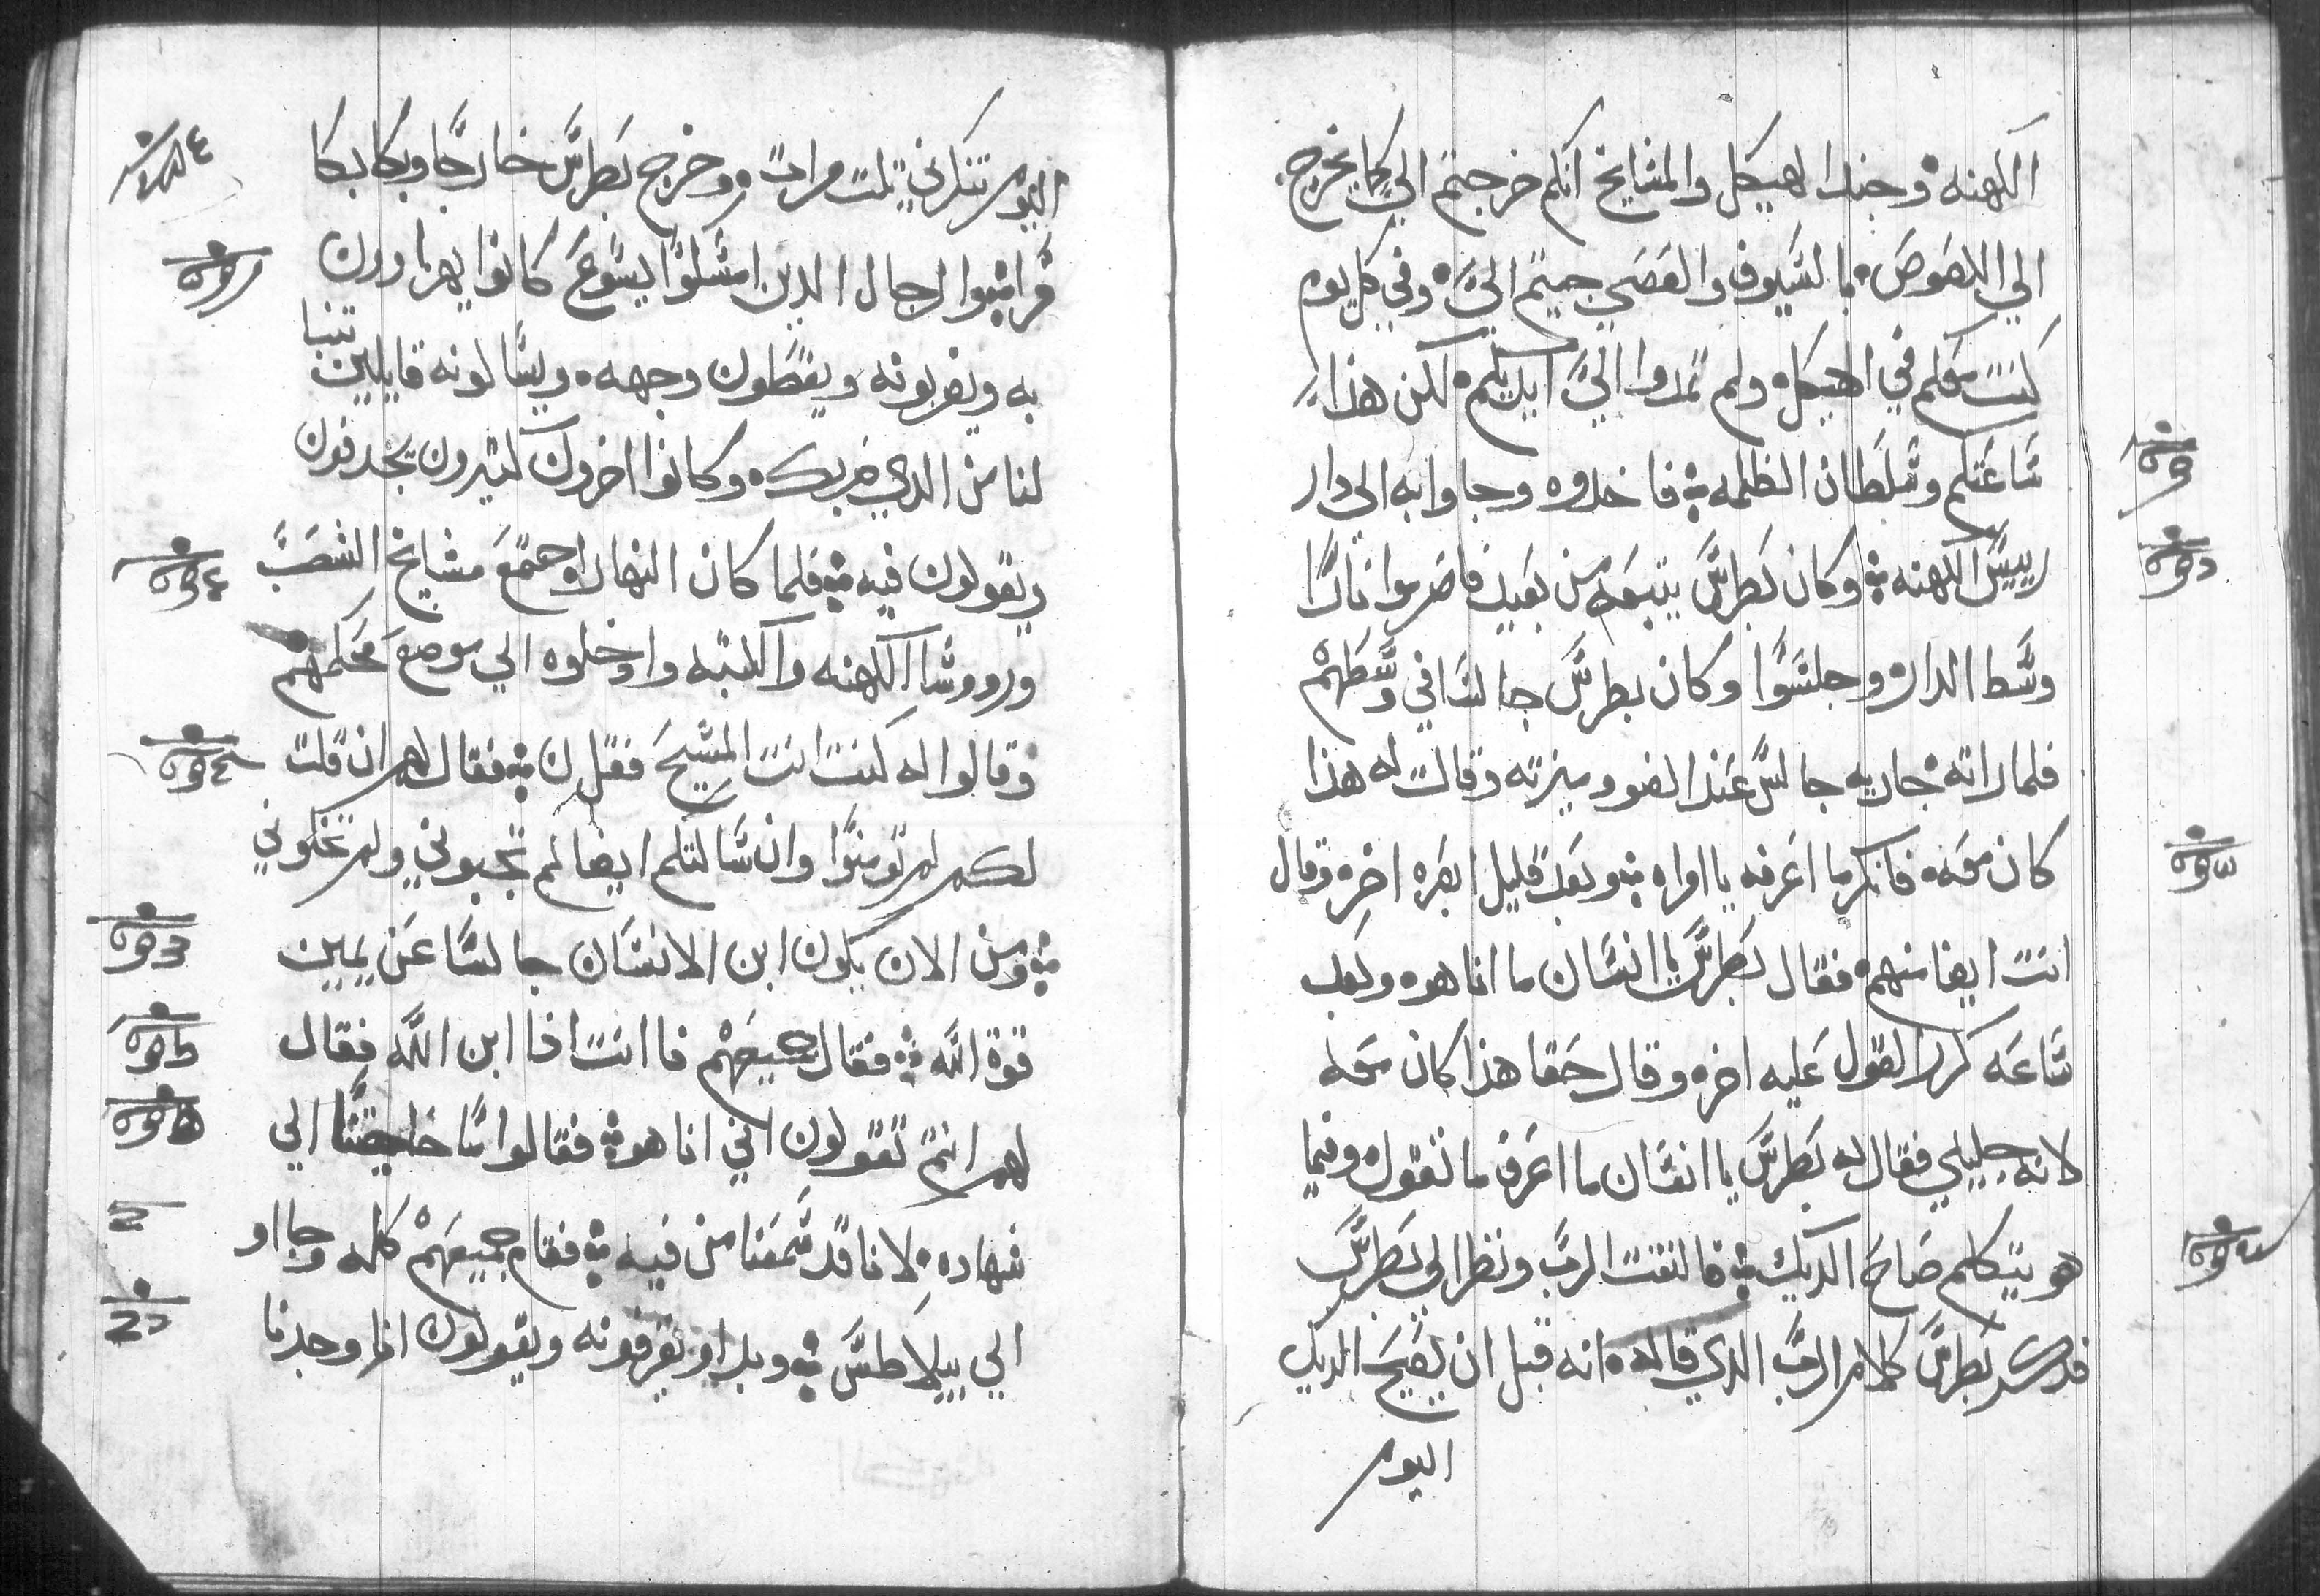 الكهنه وجند الهيكل والمشايخ انكم خرجتم الي كما يخرج
الي اللصوص بالسيوف والعصي جيتم الي وفي كل يوم
كنت معكم في الهيكل ولم تمدوا الي ايديكم لكن هذا
ساعتكم وسلطان الظلمه فاخدوه وجاوا به الى دار
رييس الكهنه وكان بطرس يتبعه من بعيد فاضرموا نارا
وسط الدار وجلسوا وكان بطرس جالسا في وسطهم
فلما راته جاريه جالس عند الضو وميزته وقالت له هذا
كان معه فانكر ما اعرفه يا امراه وبعد قليل ابصره اخر وقال
انت ايضا منهم فقال بطرس يا انسان ما انا هو وبعد
ساعه كرر القول عليه اخر وقال حقا هذا كان معه
لانه جليلي فقال له بطرس يا انسان ما اعرف ما تقول وفيما
هو يتكلم صاح الديك فالتفت الرب ونظر الي بطرس
فدكر بطرس كلام الرب الدي قاله انه قبل ان يصيح الديك
اليوم
اليوم تنكرني تلت مرات وخرج بطرس خارجا وبكا بكا
مرا والرجال الدين امسكوا يسوع كانوا يهزاوون
به ويضربونه ويغطون وجهه ويسالونه قايلين تنبا
لنا من الدي ضربك وكانوا اخرون كثيرون يجدفون
ويقولون فيه فلما كان النهار اجتمع مشايخ الشعب
وروسا الكهنه والكتبه وادخلوه الي موضع محكمهم
وقالوا له كنت انت المسيح فقل لنا فقال لهم ان قلت
لكم لم تومنوا وان سالتكم ايضا لم تجبوني ولم تخلوني
ومن الان يكون ابن الانسان جالسا عن يمين
قوة الله فقال جميعهم فاانت ادا ابن الله فقال
لهم انتم تقولون اني انا هو فقالوا ما حاجتنا الي
شهاده لانا قد سمعنا من فيه فقام جميعهم كله وجااو
الي بيلاطس وبداو يقرفونه ويقولون انا وجدنا